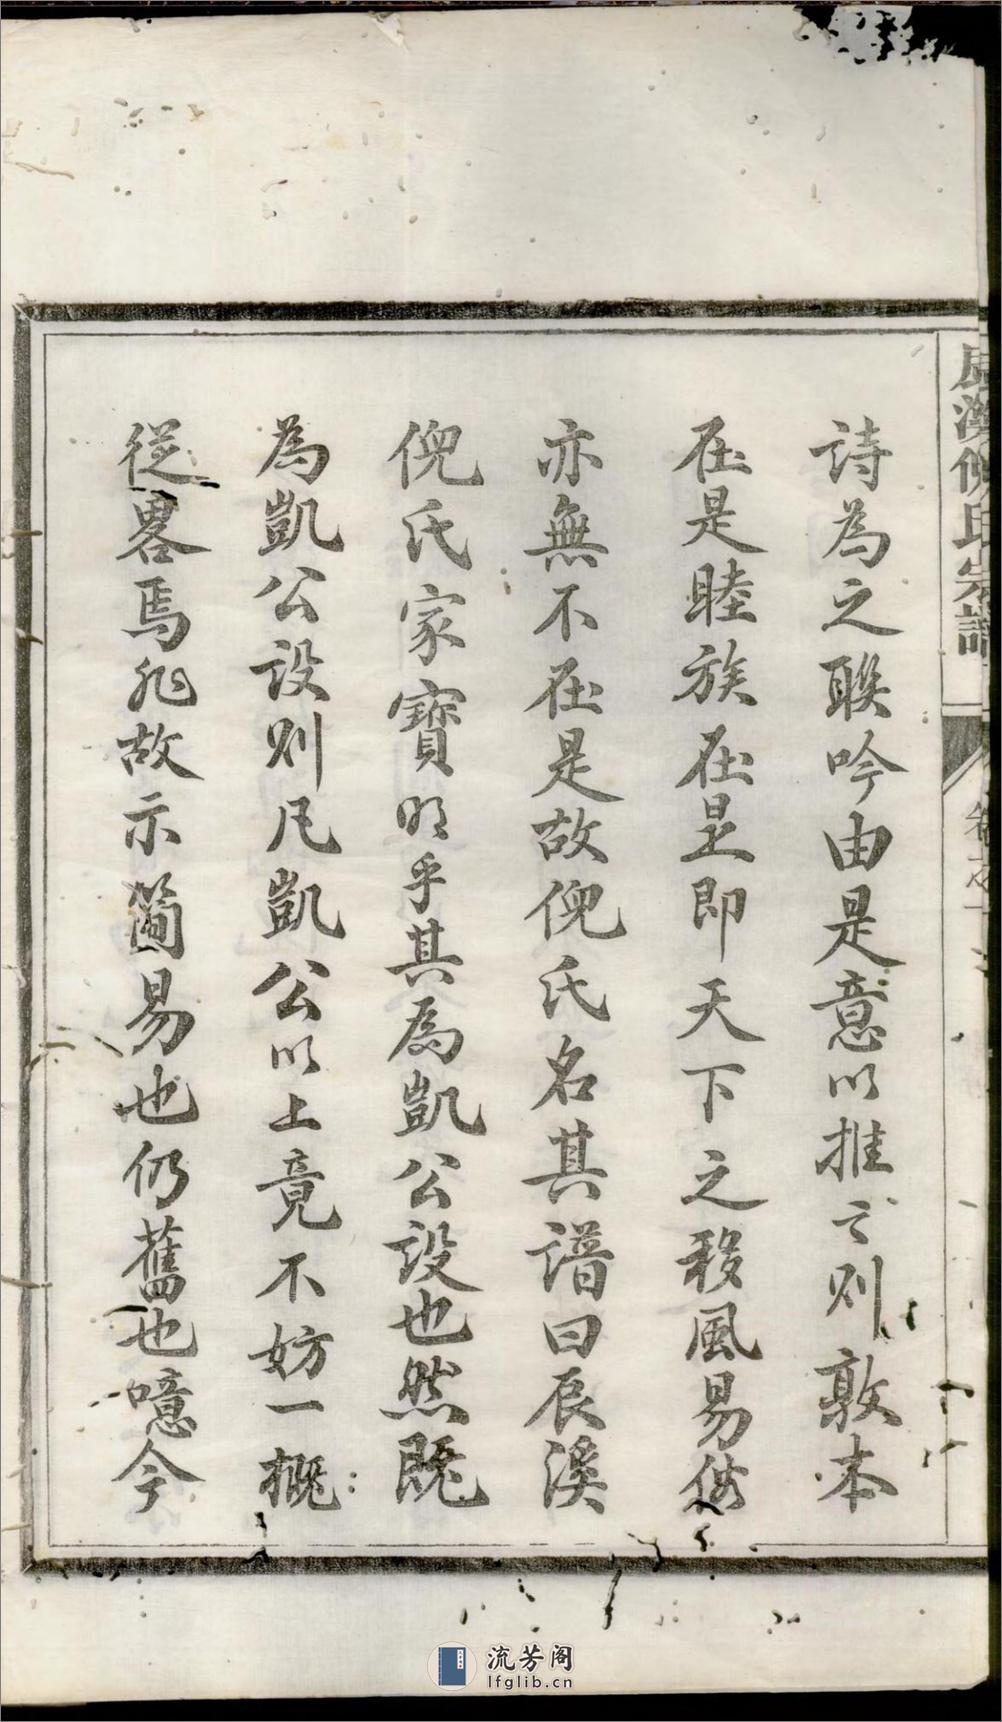 辰溪倪氏宗譜
卷之一
詩為之聯吟由是意以推之則敦本
在是睦族在是即天下之移風易俗
亦無不在是故倪氏名其譜曰辰溪
倪氏家寶明乎其為凱公設也然既
為凱公設則凡凱公以上竟不妨一概
從畧焉非故示簡易也仍舊也噫今
流芳阁
lfglib.cn